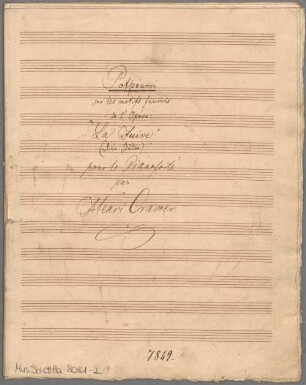 Potpourri
sur les motifs favoris
de l'Opéra:
"La Juive"
(die Jüdin)
pour le Pianoforté
par
Henri Cramer
1849.
Mus.Schott.Ha 8081-2